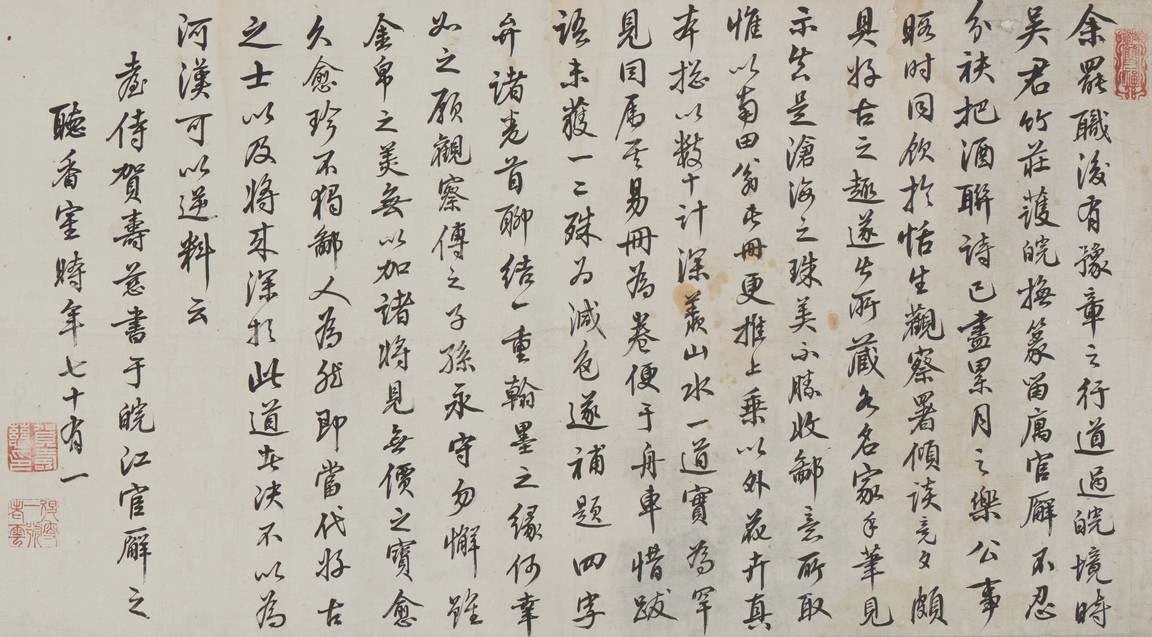 余罷職後有豫章之行道過皖境時
吳君竹莊護皖撫篆留寓官廨不忍
分袂把酒聯詩已盡累月之樂公事
暇時同飲於恬生觀察署傾談竟夕頗
具好古之趣遂出所藏各名家手筆見
示安是滄海之珠美不勝收鄙意所取
惟以南田翁此冊更推上乘以外花卉真
本揔以數十計深羨山水一道實為罕
見因屬其易冊為卷便于舟車惜跋
語未獲一二殊為減色遂補題四字
弁諸卷首聊結一重翰墨之緣何幸
如之願觀察傳之子孫永守勿懈雖
金帛之美無以加諸將見無價之寶愈
久愈珍不獨鄙人為然即當代好古
之士以及將來深於此道者決不以為
河漢可以逆料云
臺侍賀壽慈書于皖江官廨之
聽香室時年七十有一